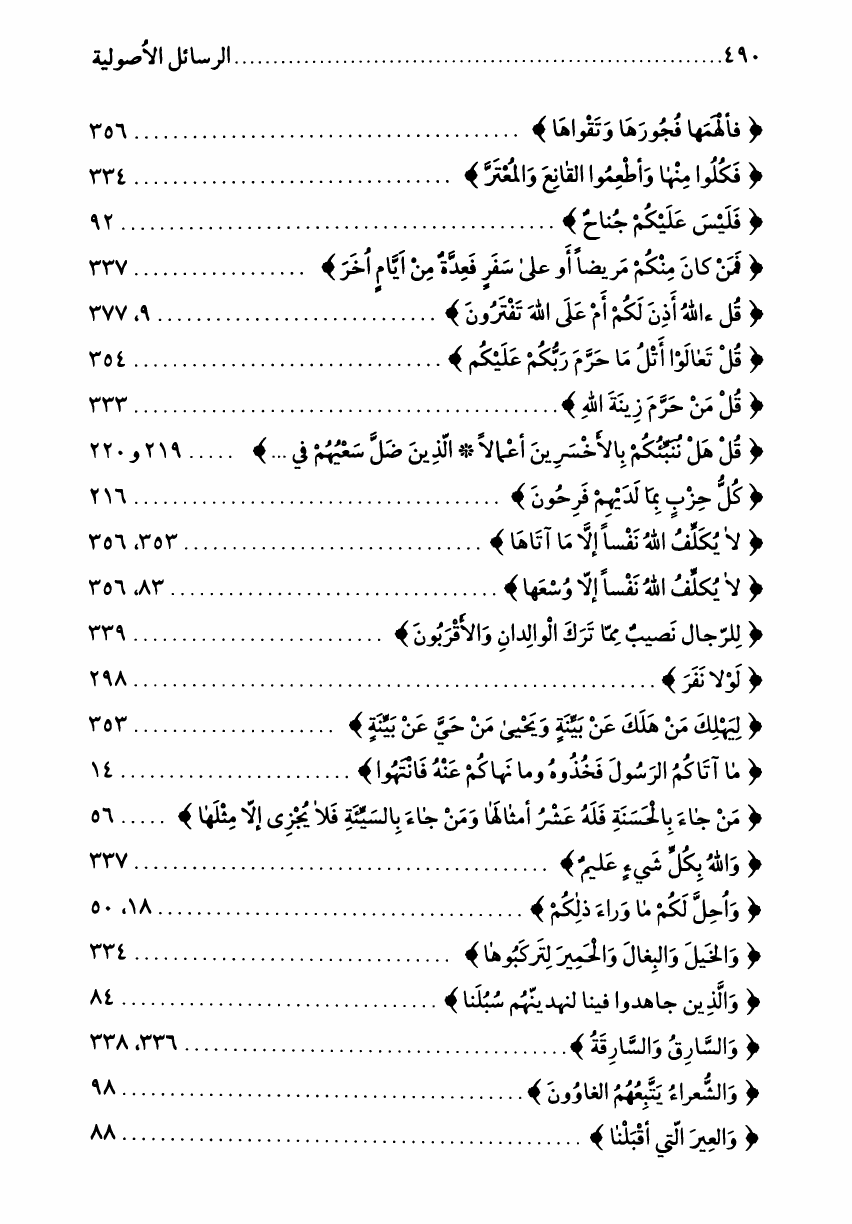 ٤٩٠ ............................................................... الرسائل الأصولية
﴿ فألْهَمَها فُجُورَهَا وَتَقْواهَا ﴾ ........................................ ٣٥٦
﴿ فَكُلُوا مِنْهٰا وَأطْعِمُوا القٰانِعَ وَالمُعْتَرَّ ﴾ ................................. ٣٣٤
﴿ فَلَيْسَ عَلَيْكُمْ جُناحٌ ﴾ ............................................. ٩٢
﴿ فَمَنْ كانَ مِنْكُمْ مَريضاً أَو علىٰ سَفَرٍ فَعِدَّةٌ مِنْ اَيَّامٍ أُخَرَ ﴾ .................. ٣٣٧
﴿ قُل ءاللهُ أَذِنَ لَكُمْ أَمْ عَلَى اللهَ تَفْتَرُونَ ﴾ ............................. ٩، ٣٧٧
﴿ قُلْ تَعٰالَوْا أَتْلُ مَا حَرَّمَ رَبُّكُمْ عَلَيْكُم ﴾ ................................ ٣٥٤
﴿ قُلْ مَنْ حَرَّمَ زِينَةَ اللهِ ﴾ ............................................ ٣٣٣
﴿ قُلْ هَلْ نُنَبِّئُكُمْ بِالأَخْسَرِينَ أعْمالاً * الّذِينَ ضَلَّ سَعْيُهُمْ في ... ﴾ ..... ٢١٩ و ٢٢٠
﴿ كُلُّ حِزْبٍ بِمَا لَدَيْهِمْ فَرِحُونَ ﴾ ...................................... ٢١٦
﴿ لاٰ يُكَلِّفُ اللهُ نَفْساً إلَّا مَا آتَاهَا ﴾ ............................... ٣٥٣، ٣٥٦
﴿ لاٰ يُكلِّفُ اللهُ نَفْساً إلّا وُسْعَها ﴾ .................................. ٨٣، ٣٥٦
﴿ لِلرّجال نَصيبٌ مِمّا تَرَكَ الْوالِدانِ وَالأَقْرَبُونَ ﴾ .......................... ٣٣٩
﴿ لَوْلا نَفَرَ ﴾ ...................................................... ٢٩٨
﴿ لِيَهْلِكَ مَنْ هَلَكَ عَنْ بَيِّنَةٍ وَيَحْيىٰ مَنْ حَيَّ عَنْ بَيِّنَةٍ ﴾ ..................... ٣٥٣
﴿ مٰا آتَاكُمُ الرَسُولَ فَخُذُوهُ وما نَهاكُمْ عَنْهُ فَانْتَهُوا ﴾ ........................ ١٤
﴿ مَنْ جٰاءَ بِالْحَسَنَةِ فَلَهُ عَشْرُ أمثٰالهَٰا وَمَنْ جٰاءَ بِالسَيِّئَةِ فَلاٰ يُجْزِى إلّا مِثْلَهٰا ﴾ ..... ٥٦
﴿ وَاللهُ بِكُلِّ شَيءٍ عَليمٌ ﴾ ........................................... ٣٣٧
﴿ وَأُحِلَّ لَكُمْ مٰا وَراءَ ذلِكُمْ ﴾ ...................................... ١٨، ٥٠
﴿ وَالخَيلَ وَالبِغالَ وَالْحَمِيرَ لِتَركَبُوهٰا ﴾ ................................. ٣٣٤
﴿ وَالَّذِين جاهدوا فينا لنهدينّهُم سُبُلَنا ﴾ ................................. ٨٤
﴿ وَالسَّارِقُ وَالسَّارِقَةُ ﴾ ........................................ ٣٣٦، ٣٣٨
﴿ وَالشُّعراءُ يَتَّبِعُهُمُ الغاوُونَ ﴾ .......................................... ٩٨
﴿ وَالعِيرَ الّتي أقْبَلْنٰا ﴾ ................................................ ٨٨